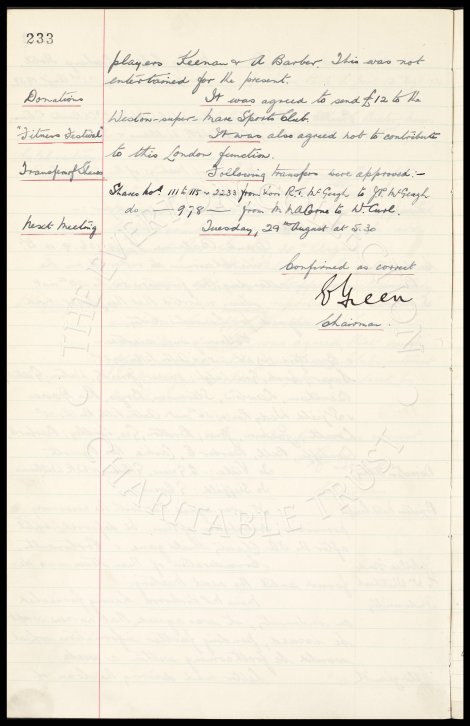 233
players Keenan & A Barber. This was not
entertained for the present.
Donations It was agreed to send £12 to the
Weston-super-Mare Sports Club.
"Fitness Festival" It was also agreed not to contribute
to this London function.
Transfer of Shares Following transfers were approved:-
Shares Nos 111 to 115 & 2233 from R.T. McGeagh to J.P. McGeagh
do — 978 — from M. to W. Curl.
Next Meeting Tuesday, 29th August at 5.30
Confirmed as correct
E Green
Chairman.
THE EVERTON
CHARITABLE TRUST